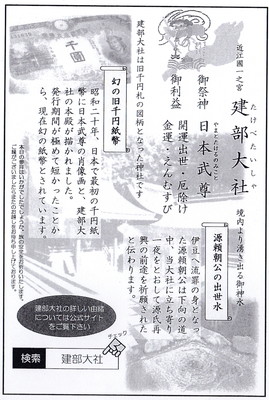 近江國一之宮
建部大社
たけべたいしゃ
御祭神　日本武尊
やまとたけるのみこと
御利益　開運出世　厄除け
金運・えんむすび
建部大社は旧千円札の図柄となった神社です
千圓
幻の旧千円紙幣
昭和二十年、日本で最初の千円紙
幣に日本武尊の肖像画と建部大
社の本殿が描かれました。
発行期間が極めて短かったことか
ら、現在幻の紙幣とされています。
境内より湧き出る御神水
源頼朝公の出世水
伊豆へ流罪の身となっ
た源頼朝公は下向の道
中、当大社に立ち寄り
一夜をとおして源氏再
興の前途を祈願された
と伝わります。
建部大社の詳しい由緒
については公式サイト
をご覧下さい
チェック
検索
建部大社